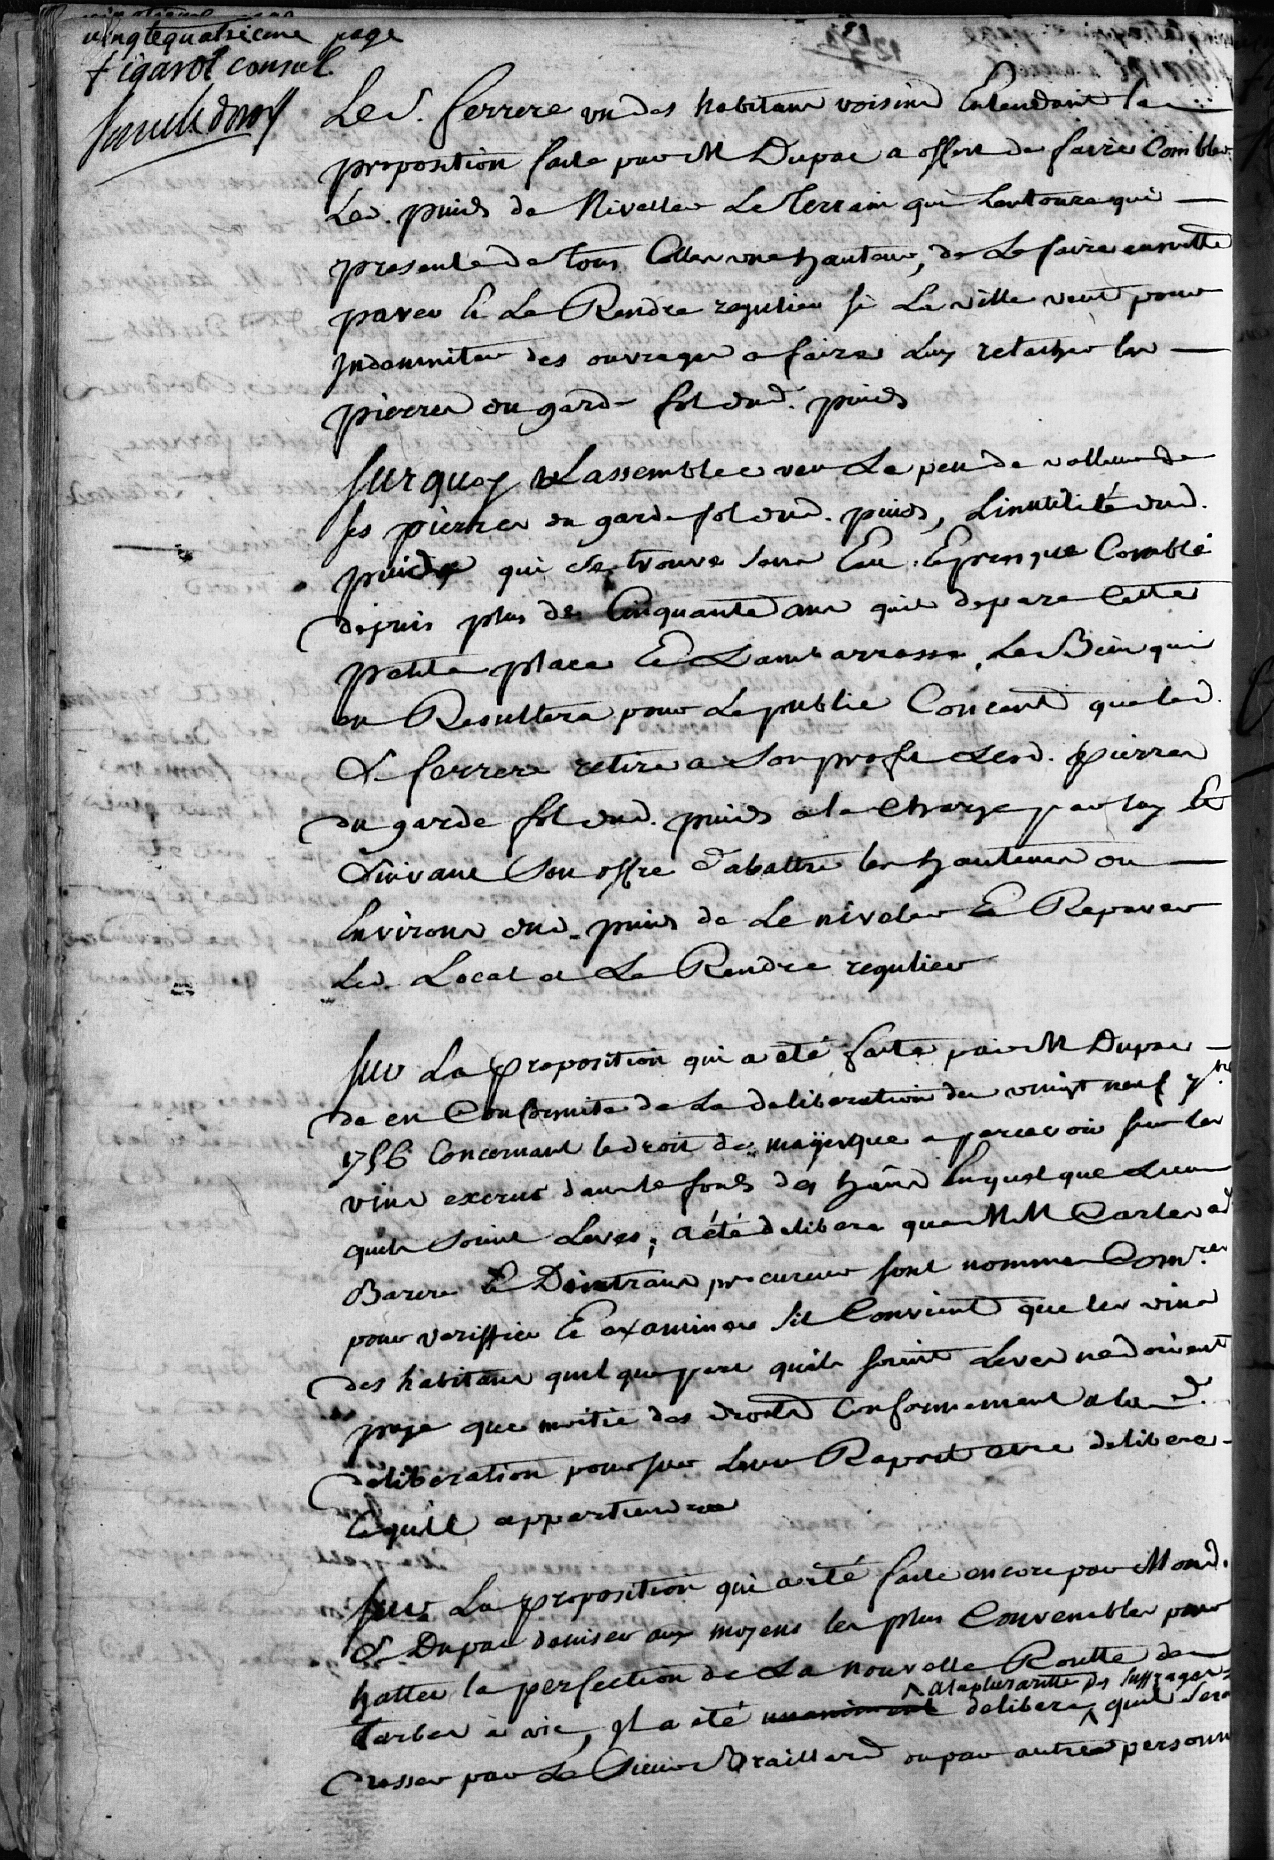 vingtequatrieme page
figarol consul
Le s. ferrere un des habitans voisins Entendant la
proposition faite par M Dupac a offert de faire Combler
Led. puids de Niveller Le terrain qui Lentoure qui
presente de tous Cottes une hauteur, de Le faire ensuitte
paver Et Le Rendre regulier si La ville veut pour
Indemniter des ouvrages a faire Luy relacher les
pierres du garde fol dud. puids
Sur quoy Lassemblée veu Le peu de valleur de
ses pierres du garde fol dud. puids, Linutilité dud.
puids qui se trouve sans Eau Et presque Comblé
depuis plus de Cinquante ans quil depare Cette
petite place Et Lambarrasse, Le Bien qui
en Resultera pour Le public Concent que led.
s. ferrere retire a son profit Lesd. pierres
du garde fol dud. puids a la Charge par luy Et
suivant son offre d'abattre les hauteurs ou
Environs dud. puids de Le niveler Et Repaver
Led. Local et Le Rendre regulier
Sur La proposition qui a eté faite par M Dupac
de en Conformité de La deliberation du vingt neuf 7bre
1756 Concernant le droit de mayesque a percevoir sur les
vins excrus dans le fonds des hans En quel que Lieu
quils soint Leves, a été deliberé que MM Carles ad
Barere Et Dintrans procureur sont nommes Comres
pour veriffier Et examiner sil Convient que les vins
des habitans quel que part quils soint Leves ne doivent
paye que moitié des droits Conformement a lad.
deliberation pour sur Leur Raport etre deliberé
Ce quil appartiendra
Sur La proposition qui a eté faite encore par Mond.
s. Dupac daviser aux moyens les plus Convenables pour
hatter la perfection de La nouvelle Routte de
a la pluraritté des suffrages
Tarbes a vic, Il a eté unaniment deliberé quil sera
Dresser par Le Sieur Draillard ou par autre personne